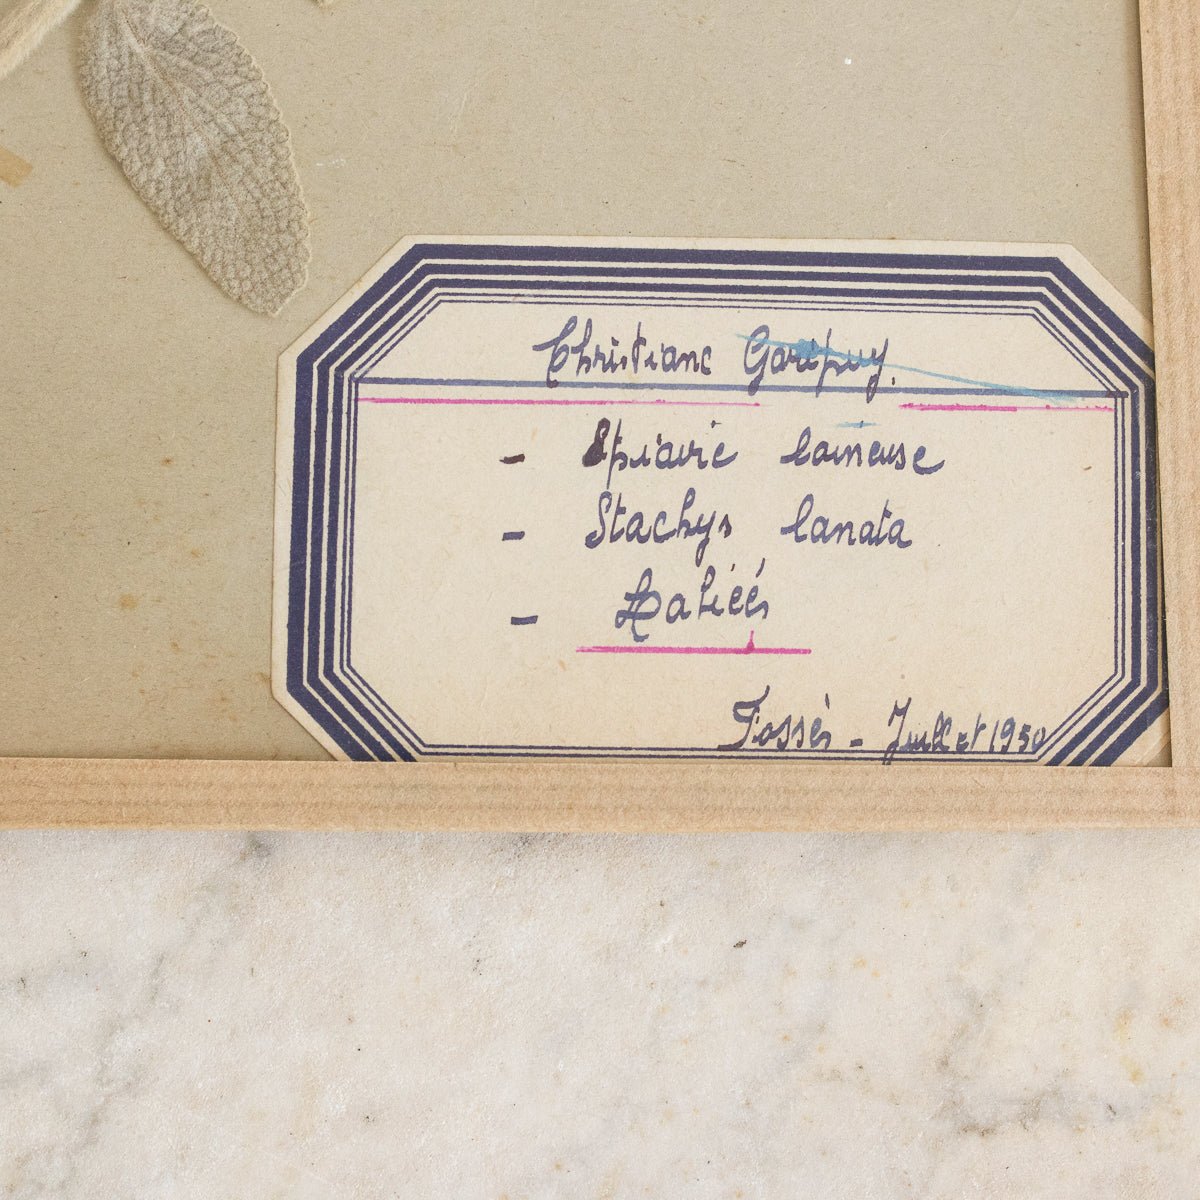 Christiane Garipuy.
- Epiavie laineuse
- Stachys lanata
- Labiéés
Fossés - Juillet 1950